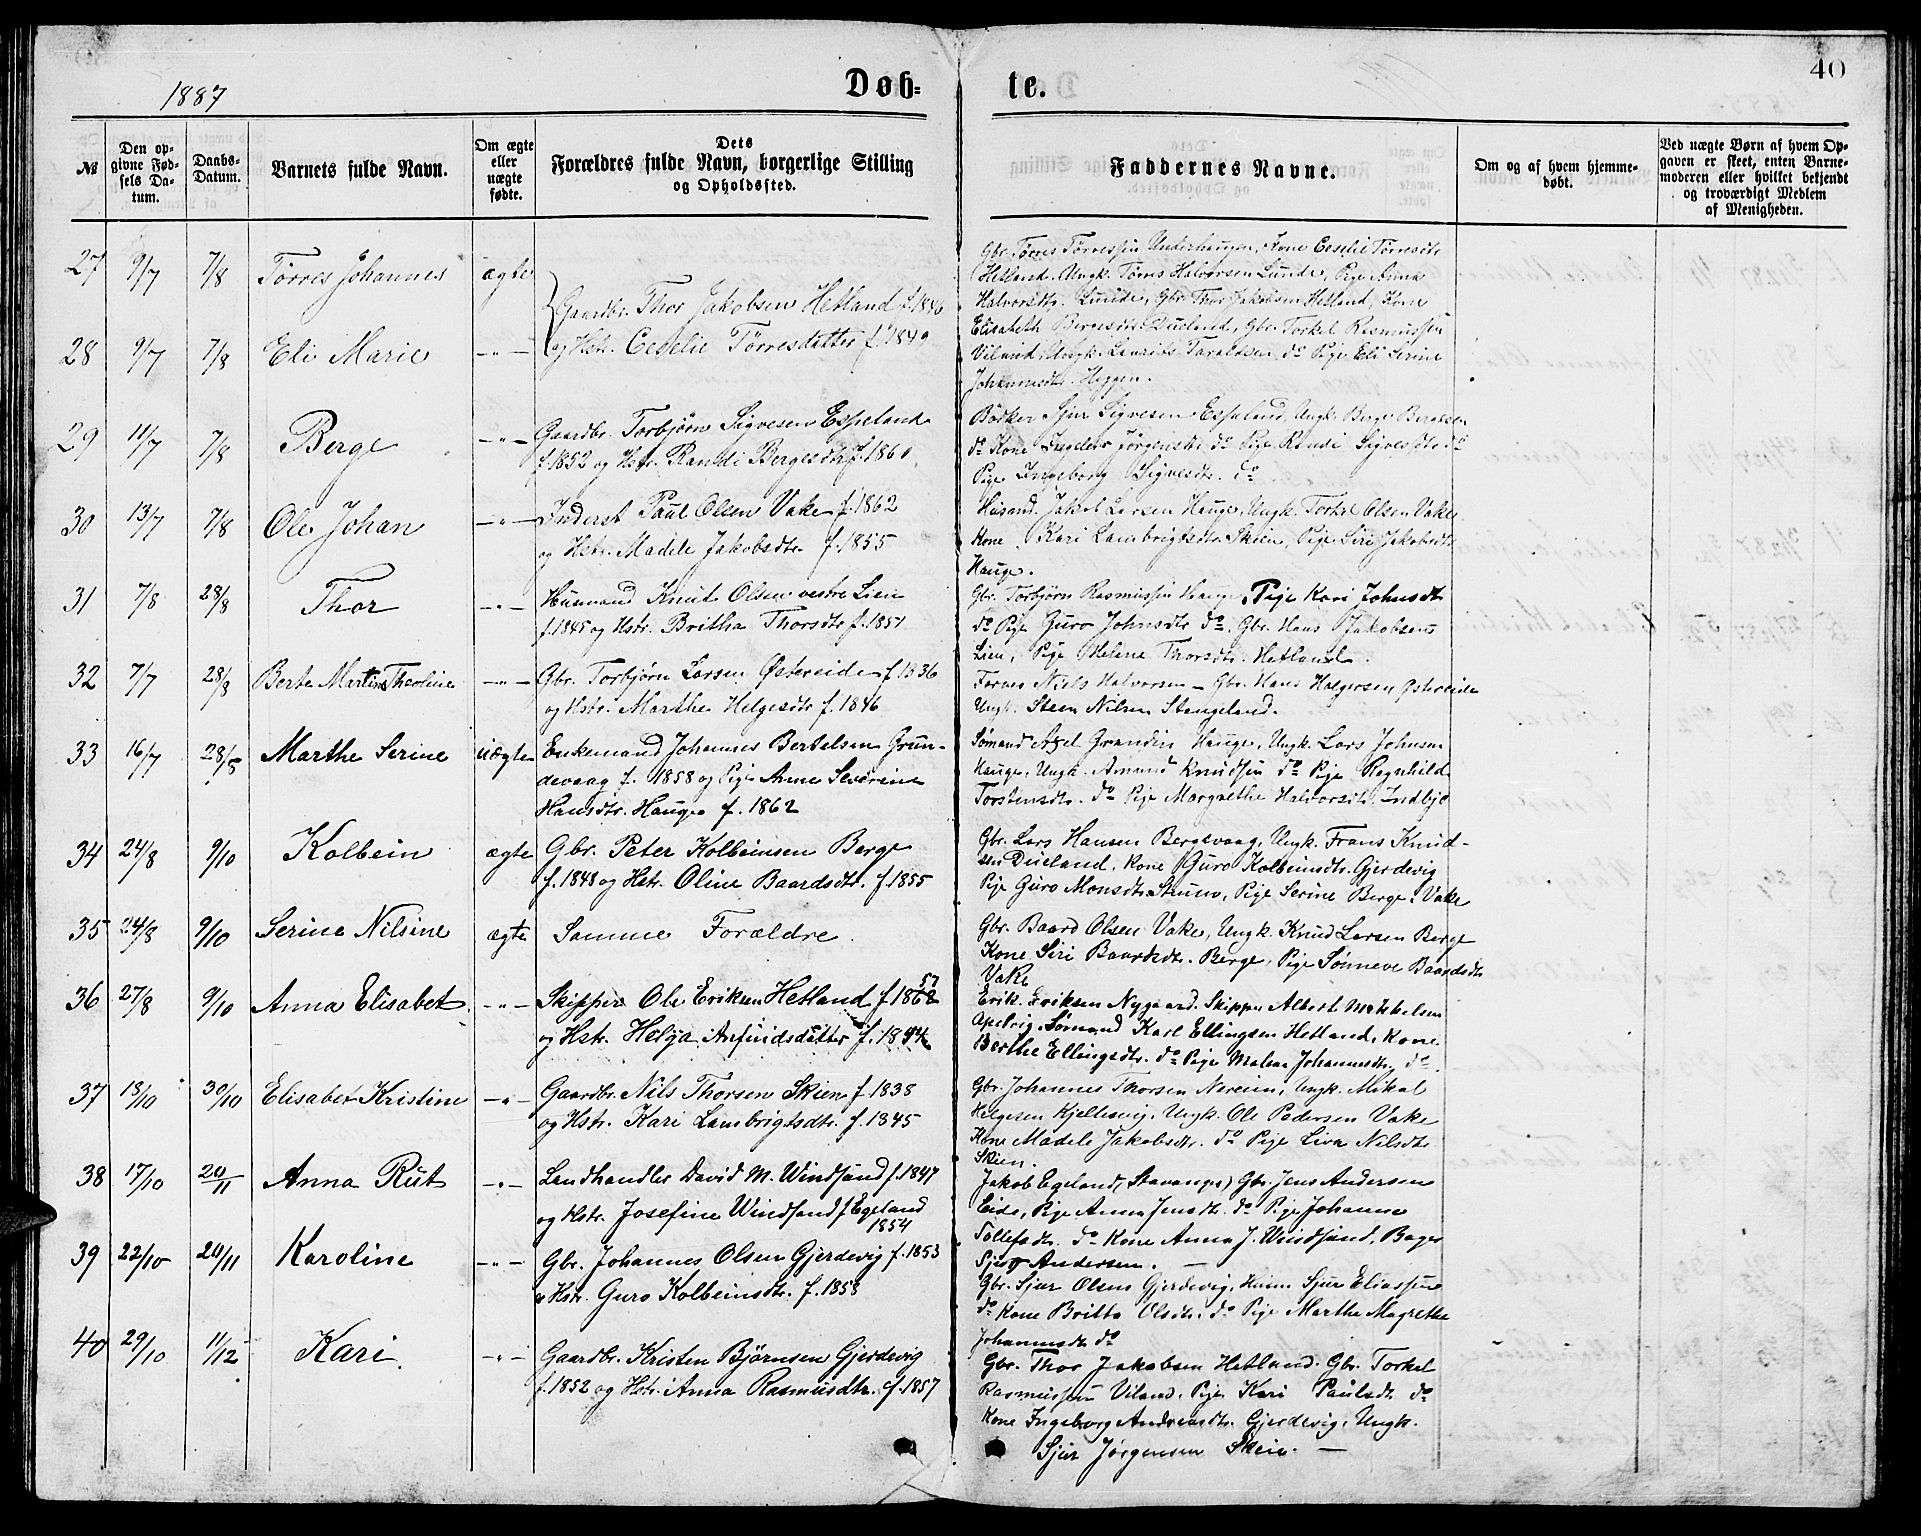 1887
Døb-
te.
40
№
Den op-
givne Fød-
sels Da-
tum.
Daabs-
Datum.
Barnets fulde Navn.
Om ægte
eller
uægte
fødte.
Dets
Forældres fulde Navn, borgerlige Stilling
og Opholdssted.
Faddernes Navne.
Om og af hvem hjemme-
døbt.
Ved uægte Børn af hvem Op-
gaven er skeet, enten Barne-
moderen eller hvilket bekjendt
og troværdigt Medlem
af Menigheden.
27 9/7 7/8 Tørres Johannes ægte
Gaardbr. Thor Jakobsen Hetland f. 1846
og Hstr. Ceselie Tørresdatter f. 1840
Gbr. Tørres Tørressen Underhaugen, Kone Ceselie Tørresdtr
Hetland, Ungk. Tørres Halvorsen Lunde, Pige Anna
Halvorsdtr. Lunde, Gbr. Thor Jakobsen Hetland, Kone
28 9/7 7/8 Eli Marie -„-
Elisabeth Bergesdtr. Dueland, Gbr. Torkel Rasmussen
Viland, Ungk. Laurits Taraldsen do Pige Eli Serine
Johannesdtr. Heggen.
29 11/7 7/8 Berge -„-
Gaardbr. Torbjørn Sigvesen Espeland
f. 1852 og Hstr. Randi Bergesdtr f. 1860
Bødker Sjur Sigvesen Espeland, Ungk. Berge Bergesen
do Kone Jørgensdtr do Pige Randi Sigvesdtr do
Pige Ingeborg Sigvesdtr. do
30 13/7 7/8 Ole Johan -„-
Inderst Paul Olsen Vake f. 1862
og Hstr. Madele Jakobsdtr. f. 1855
Husmd. Jakob Larsen Hauge, Ungk. Torkel Olsen Vake
Kone Kari Lambrigtsdtr. Skien, Pige Siri Jakobsdtr
Hauge.
31 7/8 28/8 Thor -„-
Husmand Knut Olsen vestre Lien
f. 1845 og Hstr. Britha Thorsdtr f. 1851
Gbr. Torbjørn Rasmussen Hauge, Pige Kari Johnsdtr
do Pige Guro Johnsdtr do, Gbr. Hans Jakobsen
Lien, Pige Helene Thorsdtr. Hetland.
32 7/7 28/8 Berte Martine Theoline -„-
Gbr. Torbjørn Larsen Østereide f. 1836
og Hstr. Marthe Helgesdtr f. 1846
Niels Halvorsen - Gbr. Hans Holgersen Østreide
Ungk. Steen Nilsen Stangeland.
33 16/7 28/8 Marthe Serine uægte
Enkemand Johannes Bertelsen Grun-
devaag f. 1858 og Pige Anne Severine
Hansdtr. Hauge f. 1862
Sømand Axel Grandin Hauge, Ungk. Lars Johnsen
Hauge, Ungk. Amund Knudsen do Pige Ragnhild
Torstensdtr. do Pige Margrethe Halvorsdtr. Indbjo
34 24/8 9/10 Kolbein ægte
Gbr. Peter Kolbeinsen Berge
f. 1848 og Hstr. Oline Baardsdtr. f. 1855
Gbr. Lars Hansen Bergevaag, Ungk. Frans Knud-
sen Dueland, Kone Guro Kolbeinsdtr. Gjerdevig
Pige Guro Monsdtr. Strumo, Pige Serine Berge: Vake
35 24/8 9/10 Serine Nilsine ægte
Samme Forældre.
Gbr. Baard Olsen Vake, Ungk. Knud Larsen Berge
Kone Siri Baardsdtr. Berge, Pige Sønneve Baardsdtr
Vake
36 27/8 9/10 Anna Elisabet -„-
Skipper Ole Eriksen Hetland f. 1862 57
og Hstr. Helga Anfindsdatter f. 1854
Erik Eriksen Nygaard. Skipper Albert Mikkelsen
Apelvig. Sømand Karl Ellingsen Hetland, Kone
Berthe Ellingsdtr. do Pige Malena Johannesdtr. do.
37 13/10 30/10 Elisabet Kristine -„-
Gaardbr. Nils Thorsen Skien f 1838
og Hstr. Kari Lambrigtsdtr. f. 1845
Gbr. Johannes Thorsen Nereim, Ungk. Mikal
Helgesen Kjellesvig, Ungk. Ole Pedersen Vake
Kone Madele Jakobsdtr. do Pige Liva Nilsdtr
Skien.
38 17/10 20/11 Anna Rut -„-
Landhandler David M. Windsund f. 1847
og Hstr. Josefine Windsund f Egeland
1854
Jakob Egeland (Stavanger) Gbr. Jens Andersen
Eide, Pige Anna Jensdtr. do Pige Johanne
Tollefsdtr. do Kone Anna J. Windsund, Bager
Sjur Andersen. -
39 22/10 20/11 Karoline -„-
Gbr. Johannes Olsen Gjerdevig f. 1853
„ Hstr. Guro Kolbeinsdtr. f. 1858
Gbr. Sjur Olsen Gjerdevig, Husm Sjur Eliassen
do Kone Britta Olsdtr. do Pige Marthe Magrethe
Johannesdtr do
40 29/10 11/12 Kari. -„-
Gaardbr. Kristen Bjørnsen Gjerdevig
f. 1852 og Hstr. Anna Rasmusdtr. f. 1857
Gbr. Thor Jakobsen Hetland. Gbr. Torkel
Rasmussen Viland, Pige Kari Paulsdtr. do
Kone Ingeborg Andreasdtr. Gjerdevig, Ungk.
Sjur Jørgensen Skeie. -